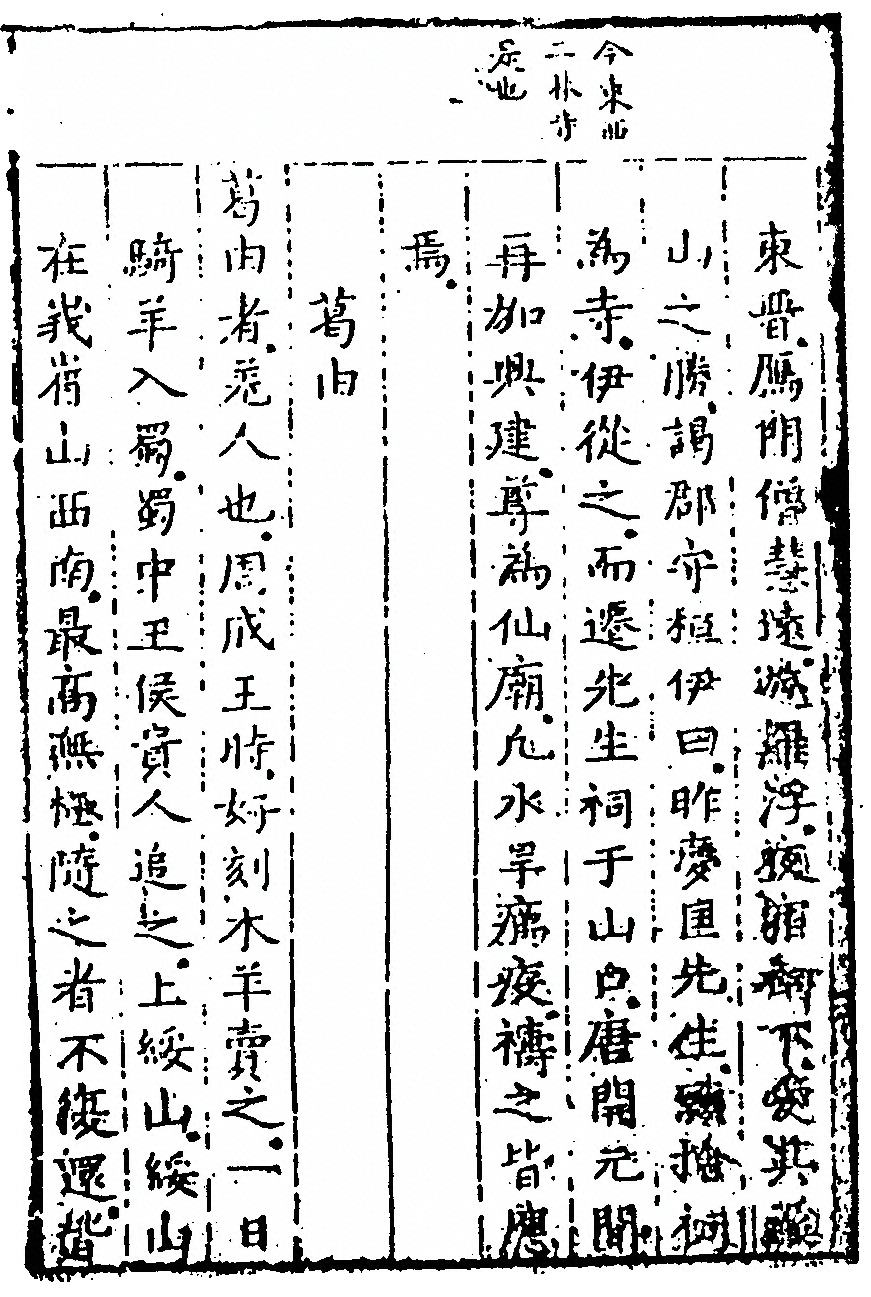 今東西
二林寺
是也
東晋鴈門僧慧遠游羅浮夜宿祠下愛其
山之勝謁郡守桓伊曰昨夢匡先生願捨祠
為寺伊從之而遷先生祠于山口唐開元間
再加興建尊為仙廟凡水旱癘疫禱之皆應
焉
葛由
葛由者羌人也周成王時好刻木羊賣之一日
騎羊入蜀蜀中王侯貴人追之上綏山綏山
在峩嵋山西南最高無極隨之者不復還皆